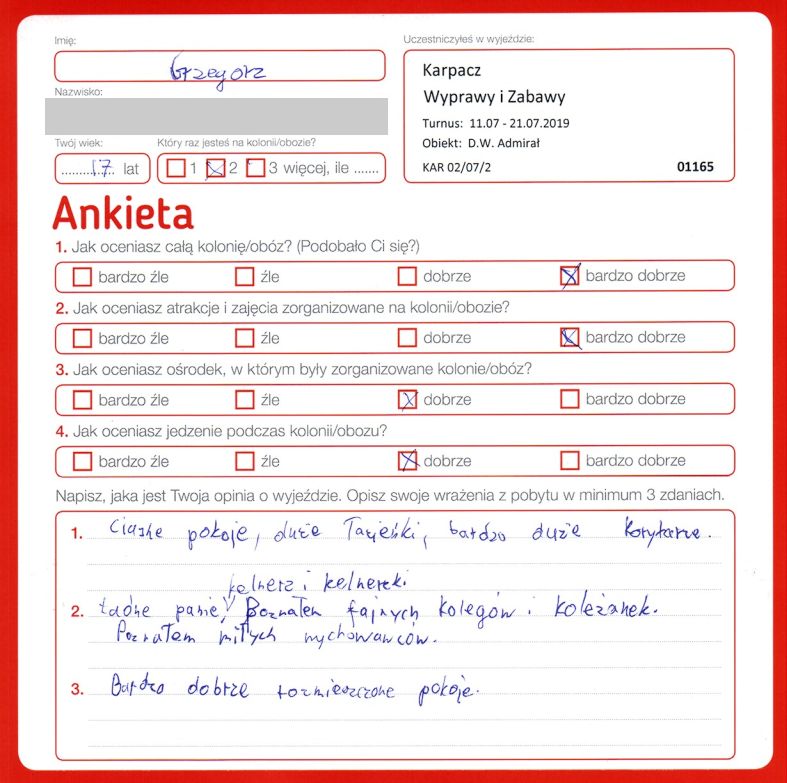 Imię:
Grzegorz
Nazwisko:
Twój wiek:
17 lat
Który raz jesteś na kolonii/obozie?
1 2 3 więcej, ile .......
Uczestniczyłeś w wyjeździe:
Karpacz
Wyprawy i Zabawy
Turnus: 11.07 - 21.07.2019
Obiekt: D.W. Admirał
KAR 02/07/2 01165
Ankieta
1. Jak oceniasz całą kolonię/obóz? (Podobało Ci się?)
bardzo źle źle dobrze bardzo dobrze
2. Jak oceniasz atrakcje i zajęcia zorganizowane na kolonii/obozie?
bardzo źle źle dobrze bardzo dobrze
3. Jak oceniasz ośrodek, w którym były zorganizowane kolonie/obóz?
bardzo źle źle dobrze bardzo dobrze
4. Jak oceniasz jedzenie podczas kolonii/obozu?
bardzo źle źle dobrze bardzo dobrze
Napisz, jaka jest Twoja opinia o wyjeździe. Opisz swoje wrażenia z pobytu w minimum 3 zdaniach.
1. Ciasne pokoje, duże łazieńki, bardzo duże korytarze.
kelnerz i kelnerki
2. Ładne panie, Poznałem fajnych kolegów i koleżanek.
Poznałem miłych wychowawców.
3. Bardzo dobrze rozmieszczone pokoje.